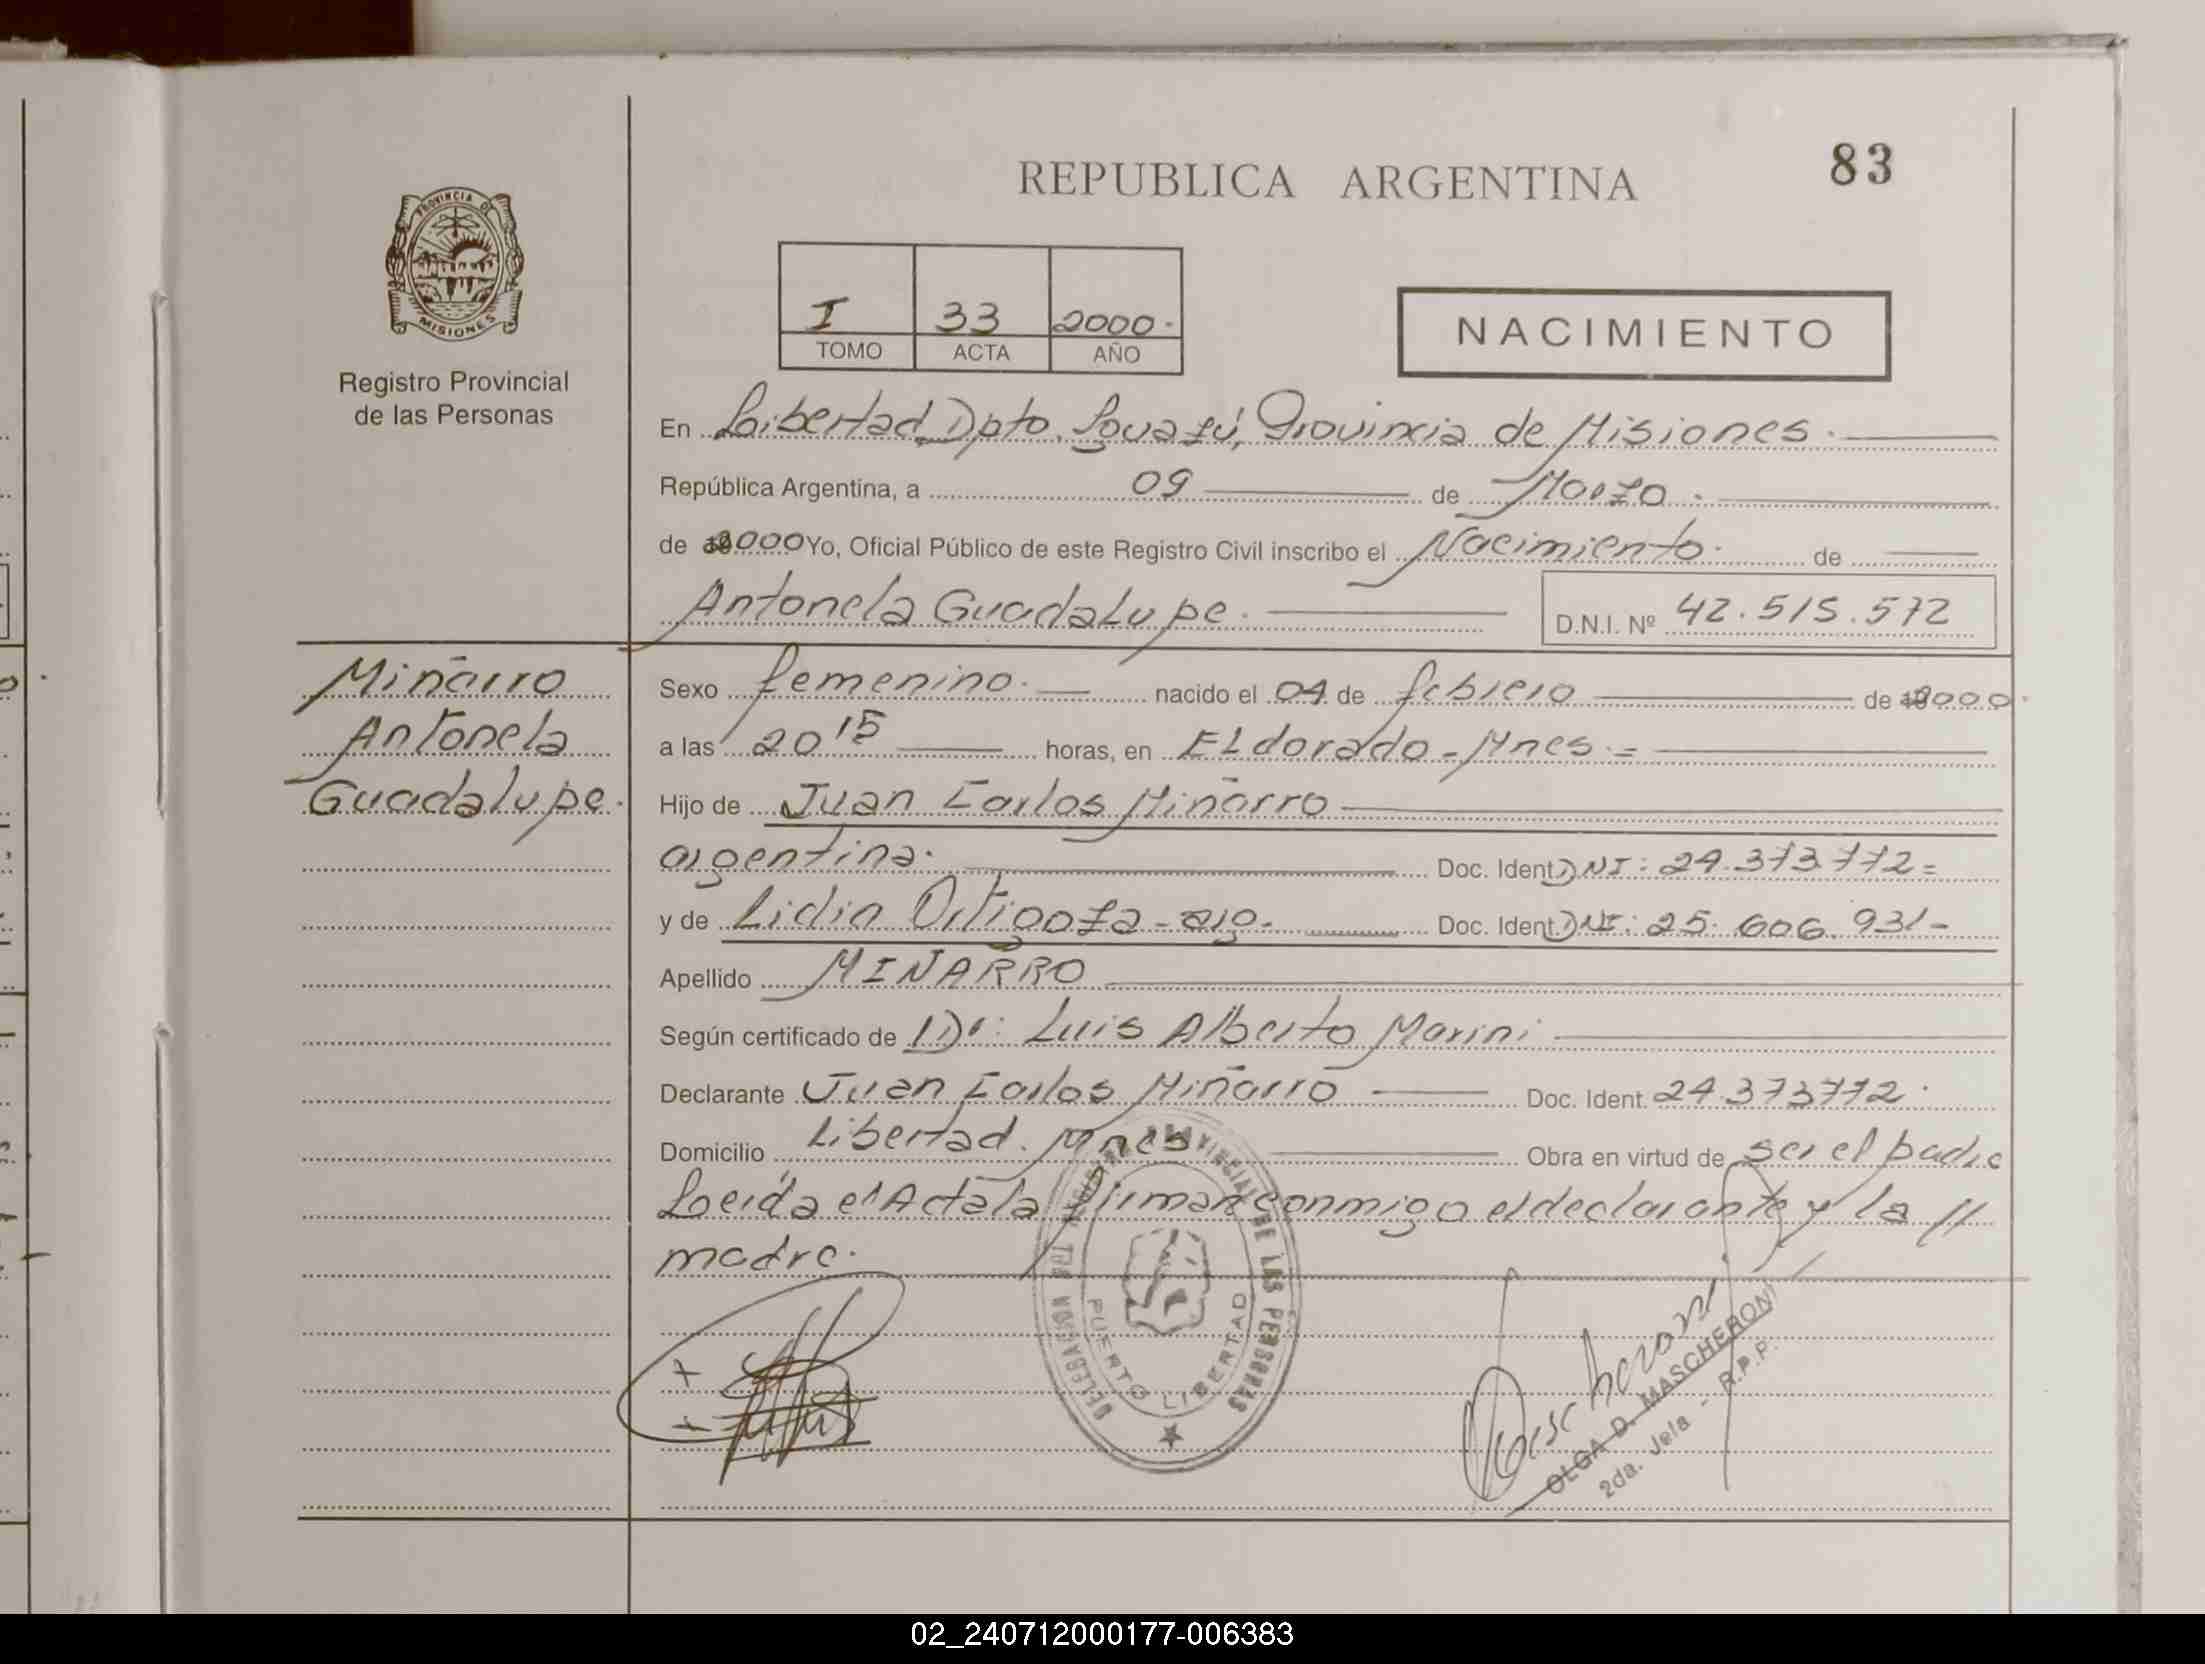 83
REPUBLICA ARGENTINA
PROVINCIA DE
MISIONES
Registro Provincial
de las Personas
I 33 2000.
TOMO ACTA AÑO
NACIMIENTO
En Libertad Dpto. Iguazú, Provincia de Misiones.
República Argentina, a 09 de Marzo.
de 2000 Yo, Oficial Público de este Registro Civil inscribo el Nacimiento. de
Antonela Guadalupe. D.N.I. Nº 42.515.572
Miñarro
Antonela
Guadalupe.
Sexo femenino. nacido el 04 de febrero de 2000.
a las 20 15 horas, en ELdorado - Mnes. =
Hijo de Juan Carlos Miñarro
argentina. Doc. Ident. DNI: 24.373.772=
y de Lidia Ortigoza - arg. Doc. Ident. DNI: 25.606.931-
Apellido MIÑARRO
Según certificado de Dr: Luis Alberto Marini
Declarante Juan Carlos Miñarro Doc. Ident. 24.373772.
Domicilio Libertad. Mnes Obra en virtud de ser el padre
Leida el Acta la firman conmigo el declarante y la //
madre.
DELEGACION DEL REGISTRO PROVINCIAL DE LAS PERSONAS
PUERTO LIBERTAD
Mascheroni
OLGA D. MASCHERONI
2da. Jefa - R.P.P.
02_240712000177-006383